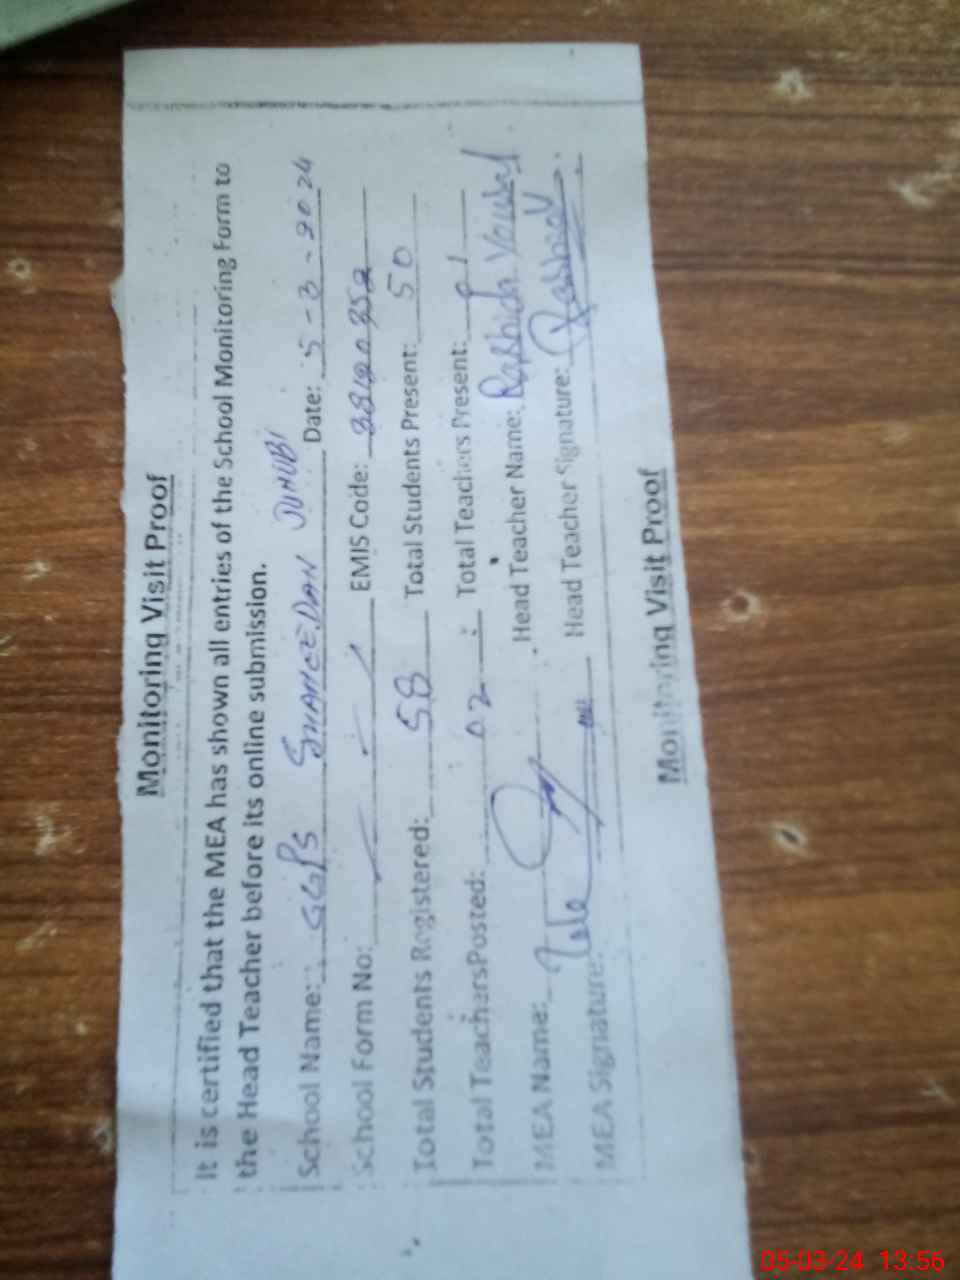 Monitoring Visit Proof
It is certified that the MEA has shown all entries of the School Monitoring Form to
the Head Teacher before its online submission.
School Name: GGPS SHAMEEDAN JUNUBI Date: 5-3-2024
School Form No: EMIS Code:
Total Students Registered: 58 Total Students Present: 50
Total Teachers Posted: 02 Total Teachers Present: 01
MEA Name: Head Teacher Name: Rashida Yousaf
MEA Signature: Head Teacher Signature: Rashida
Monitoring Visit Proof
05-03-24 13:56